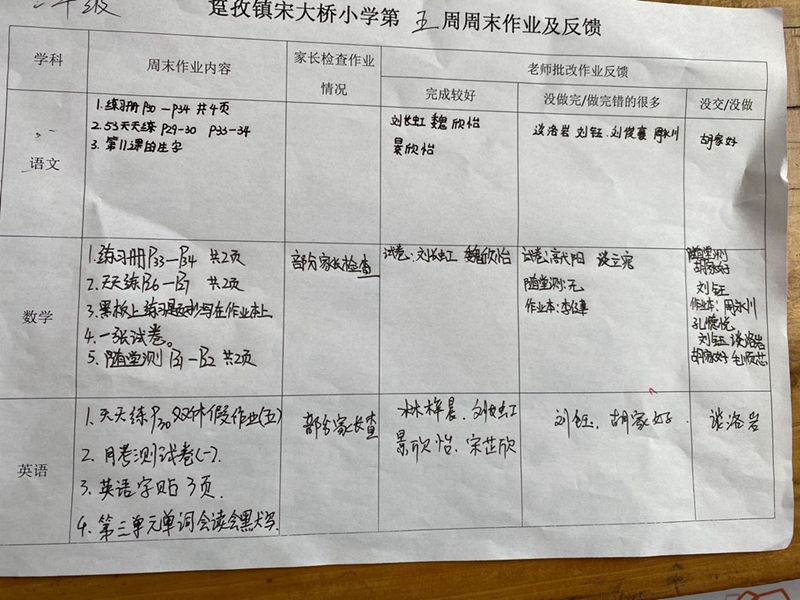 年级 趸孜镇宋大桥小学第 五 周周末作业及反馈
学科 周末作业内容 家长检查作业情况 老师批改作业反馈
完成较好 没做完/做完错的很多 没交/没做
语文
1.练习册P30—P34 共4页
2.53天天练 P29-30 P33-34
3.第11课的生字
刘长虹 魏欣怡
景欣怡
谈洛岩 刘钰 刘俊襄 周永川
胡家好
数学
1.练习册P33—P34 共2页
2.天天练P6—P7 共2页
3.黑板上练习题抄写在作业本上
4.一张试卷。
5.随堂测 P1—P2 共2页
部分家长检查
试卷:刘长虹 魏欣怡
试卷:高代阳 谈立宛
随堂测:无
作业本:李俊喜
随堂测
胡家好
刘钰
作业本:周永川
孔德悦
刘钰 谈洛岩
胡家好 毛顺芯
英语
1.天天练P30双休假作业(五)
2.月考测试卷(一).
3.英语字贴3页.
4.第三单元单词会读会默写.
部分家长查
林梓晨、刘长虹
景欣怡、宋芷欣
刘钰、胡家好.
谈洛岩